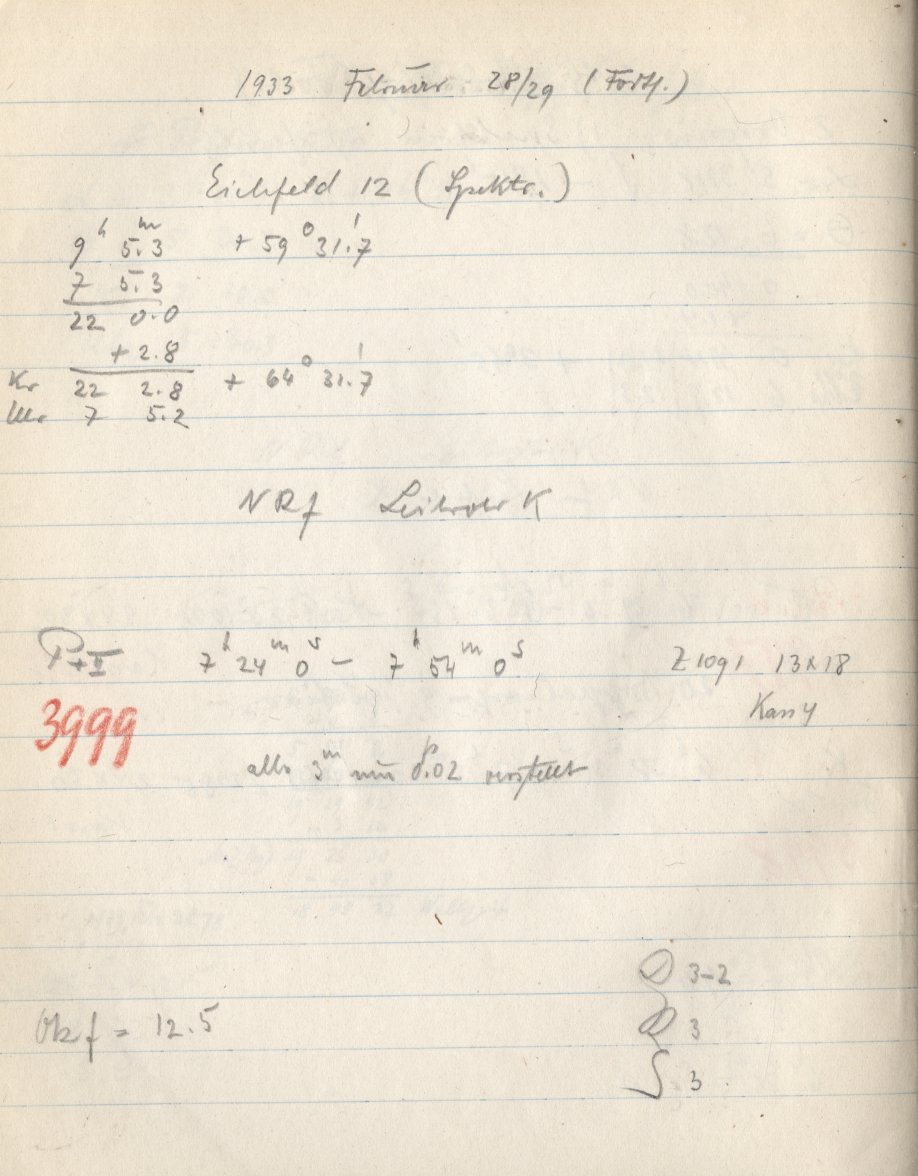 1933 Februar 28/29 (Forts.)
Eichfeld 12 (Spektr.)
9ʰ 5.3ᵐ + 59° 31.'7
7 5.3
22 0.0
+ 2.8
Kr 22 2.8 + 64° 31.'7
Uhr 7 5.2
NRf Leitrohr K
P+II 7ʰ 24ᵐ 0ˢ – 7ʰ 54ᵐ 0ˢ Z 1091 13x18
3999 Kass 4
alle 3ᵐ um 0.02 verstellt
3-2
Okf = 12.5 3
S 3